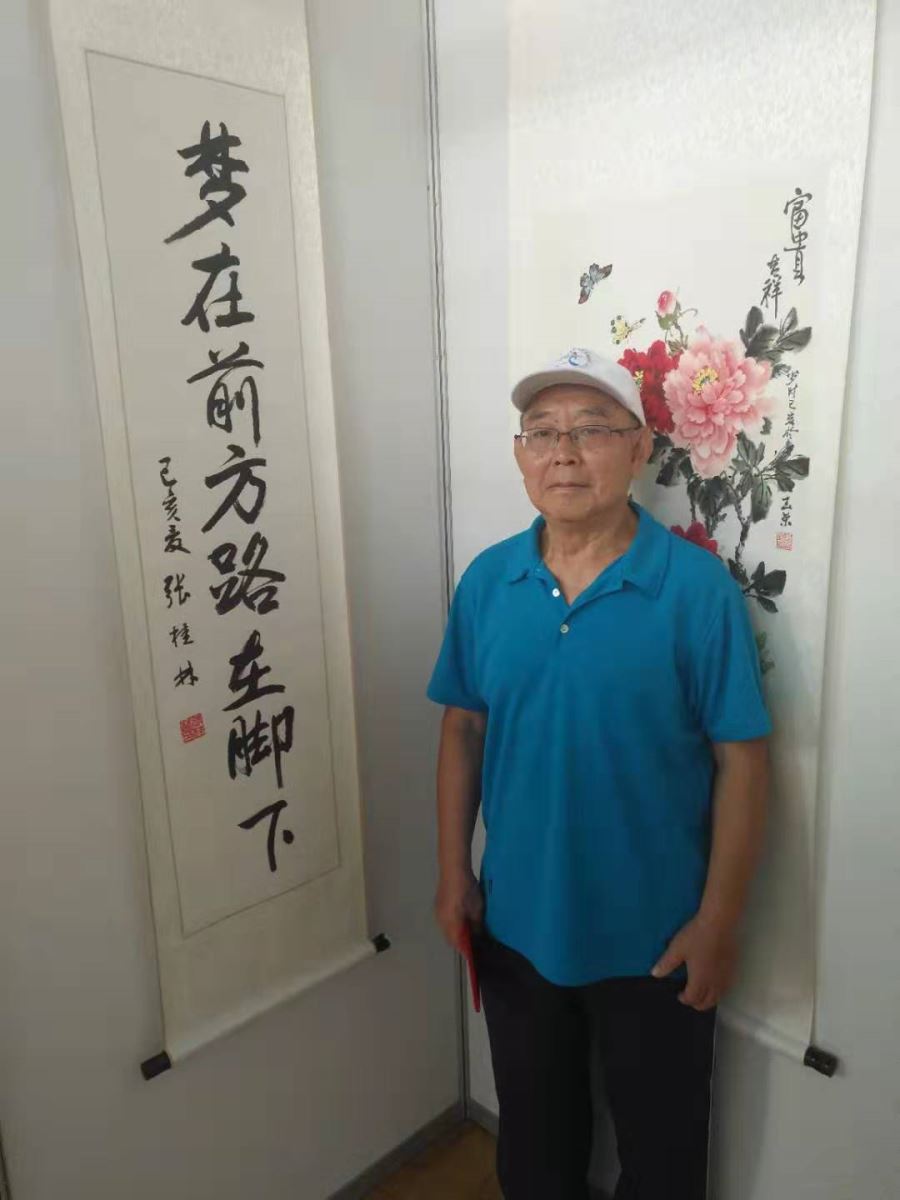 梦在前方路在脚下
己亥夏 张桂林
富贵
吉祥